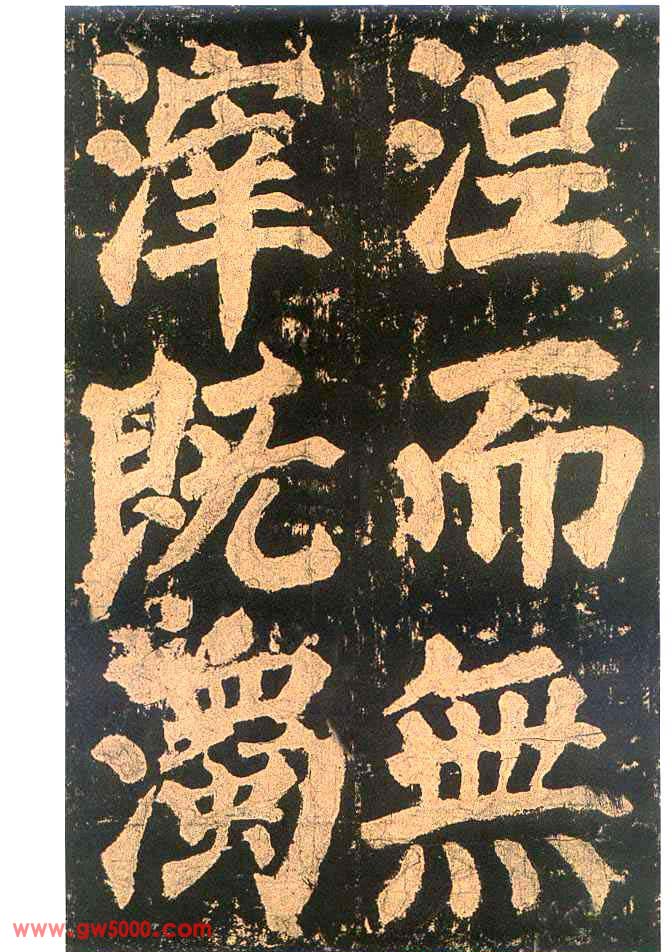 涅而無
滓既濁
www.gw5000.com